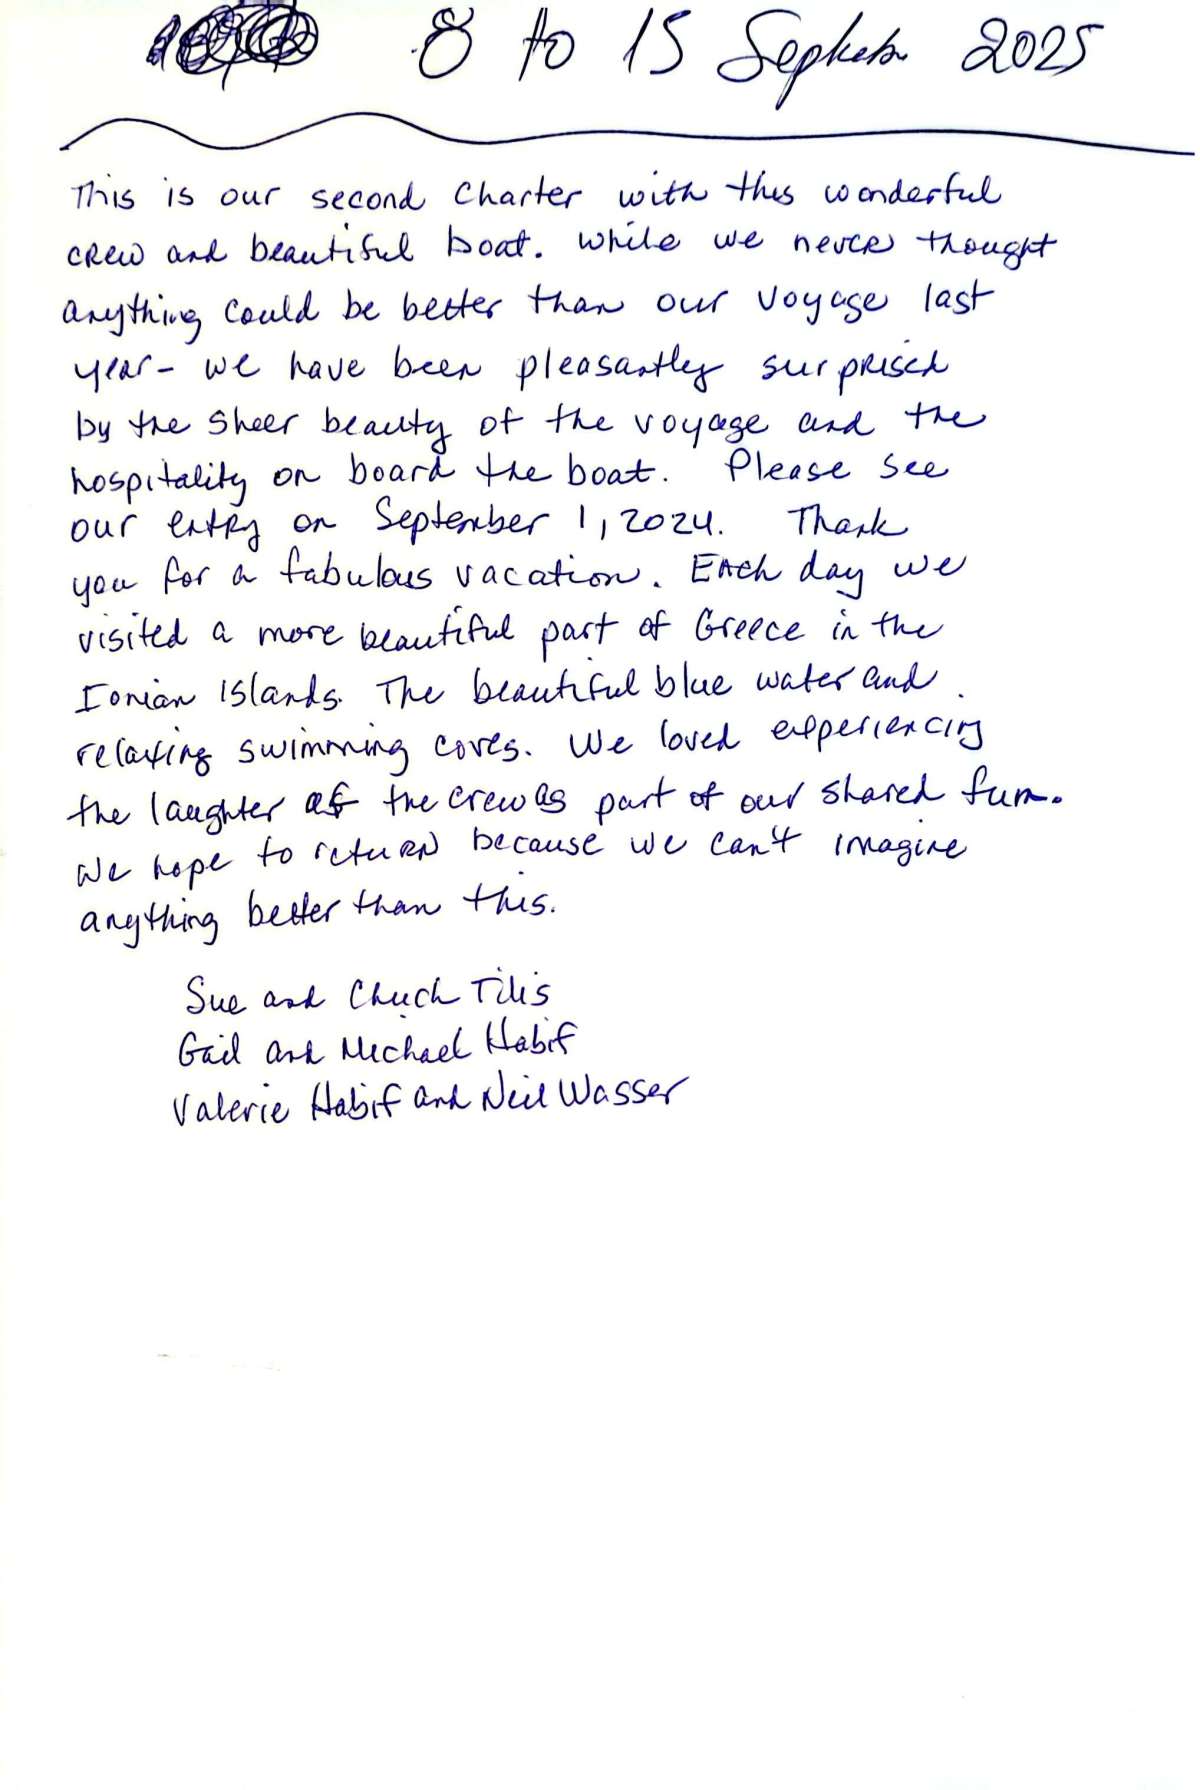 8 to 15 September 2025
This is our second Charter with this wonderful
crew and beautiful boat. While we never thought
anything could be better than our voyage last
year - we have been pleasantly surprised
by the sheer beauty of the voyage and the
hospitality on board the boat. Please see
our entry on September 1, 2024. Thank
you for a fabulous vacation. Each day we
visited a more beautiful part of Greece in the
Ionian Islands. The beautiful blue water and
relaxing swimming coves. We loved experiencing
the laughter of the crew as part of our shared fun.
We hope to return because we can't imagine
anything better than this.
Sue and Chuck
Gail and Michael Habif
Valerie Habif and Neil Wasser